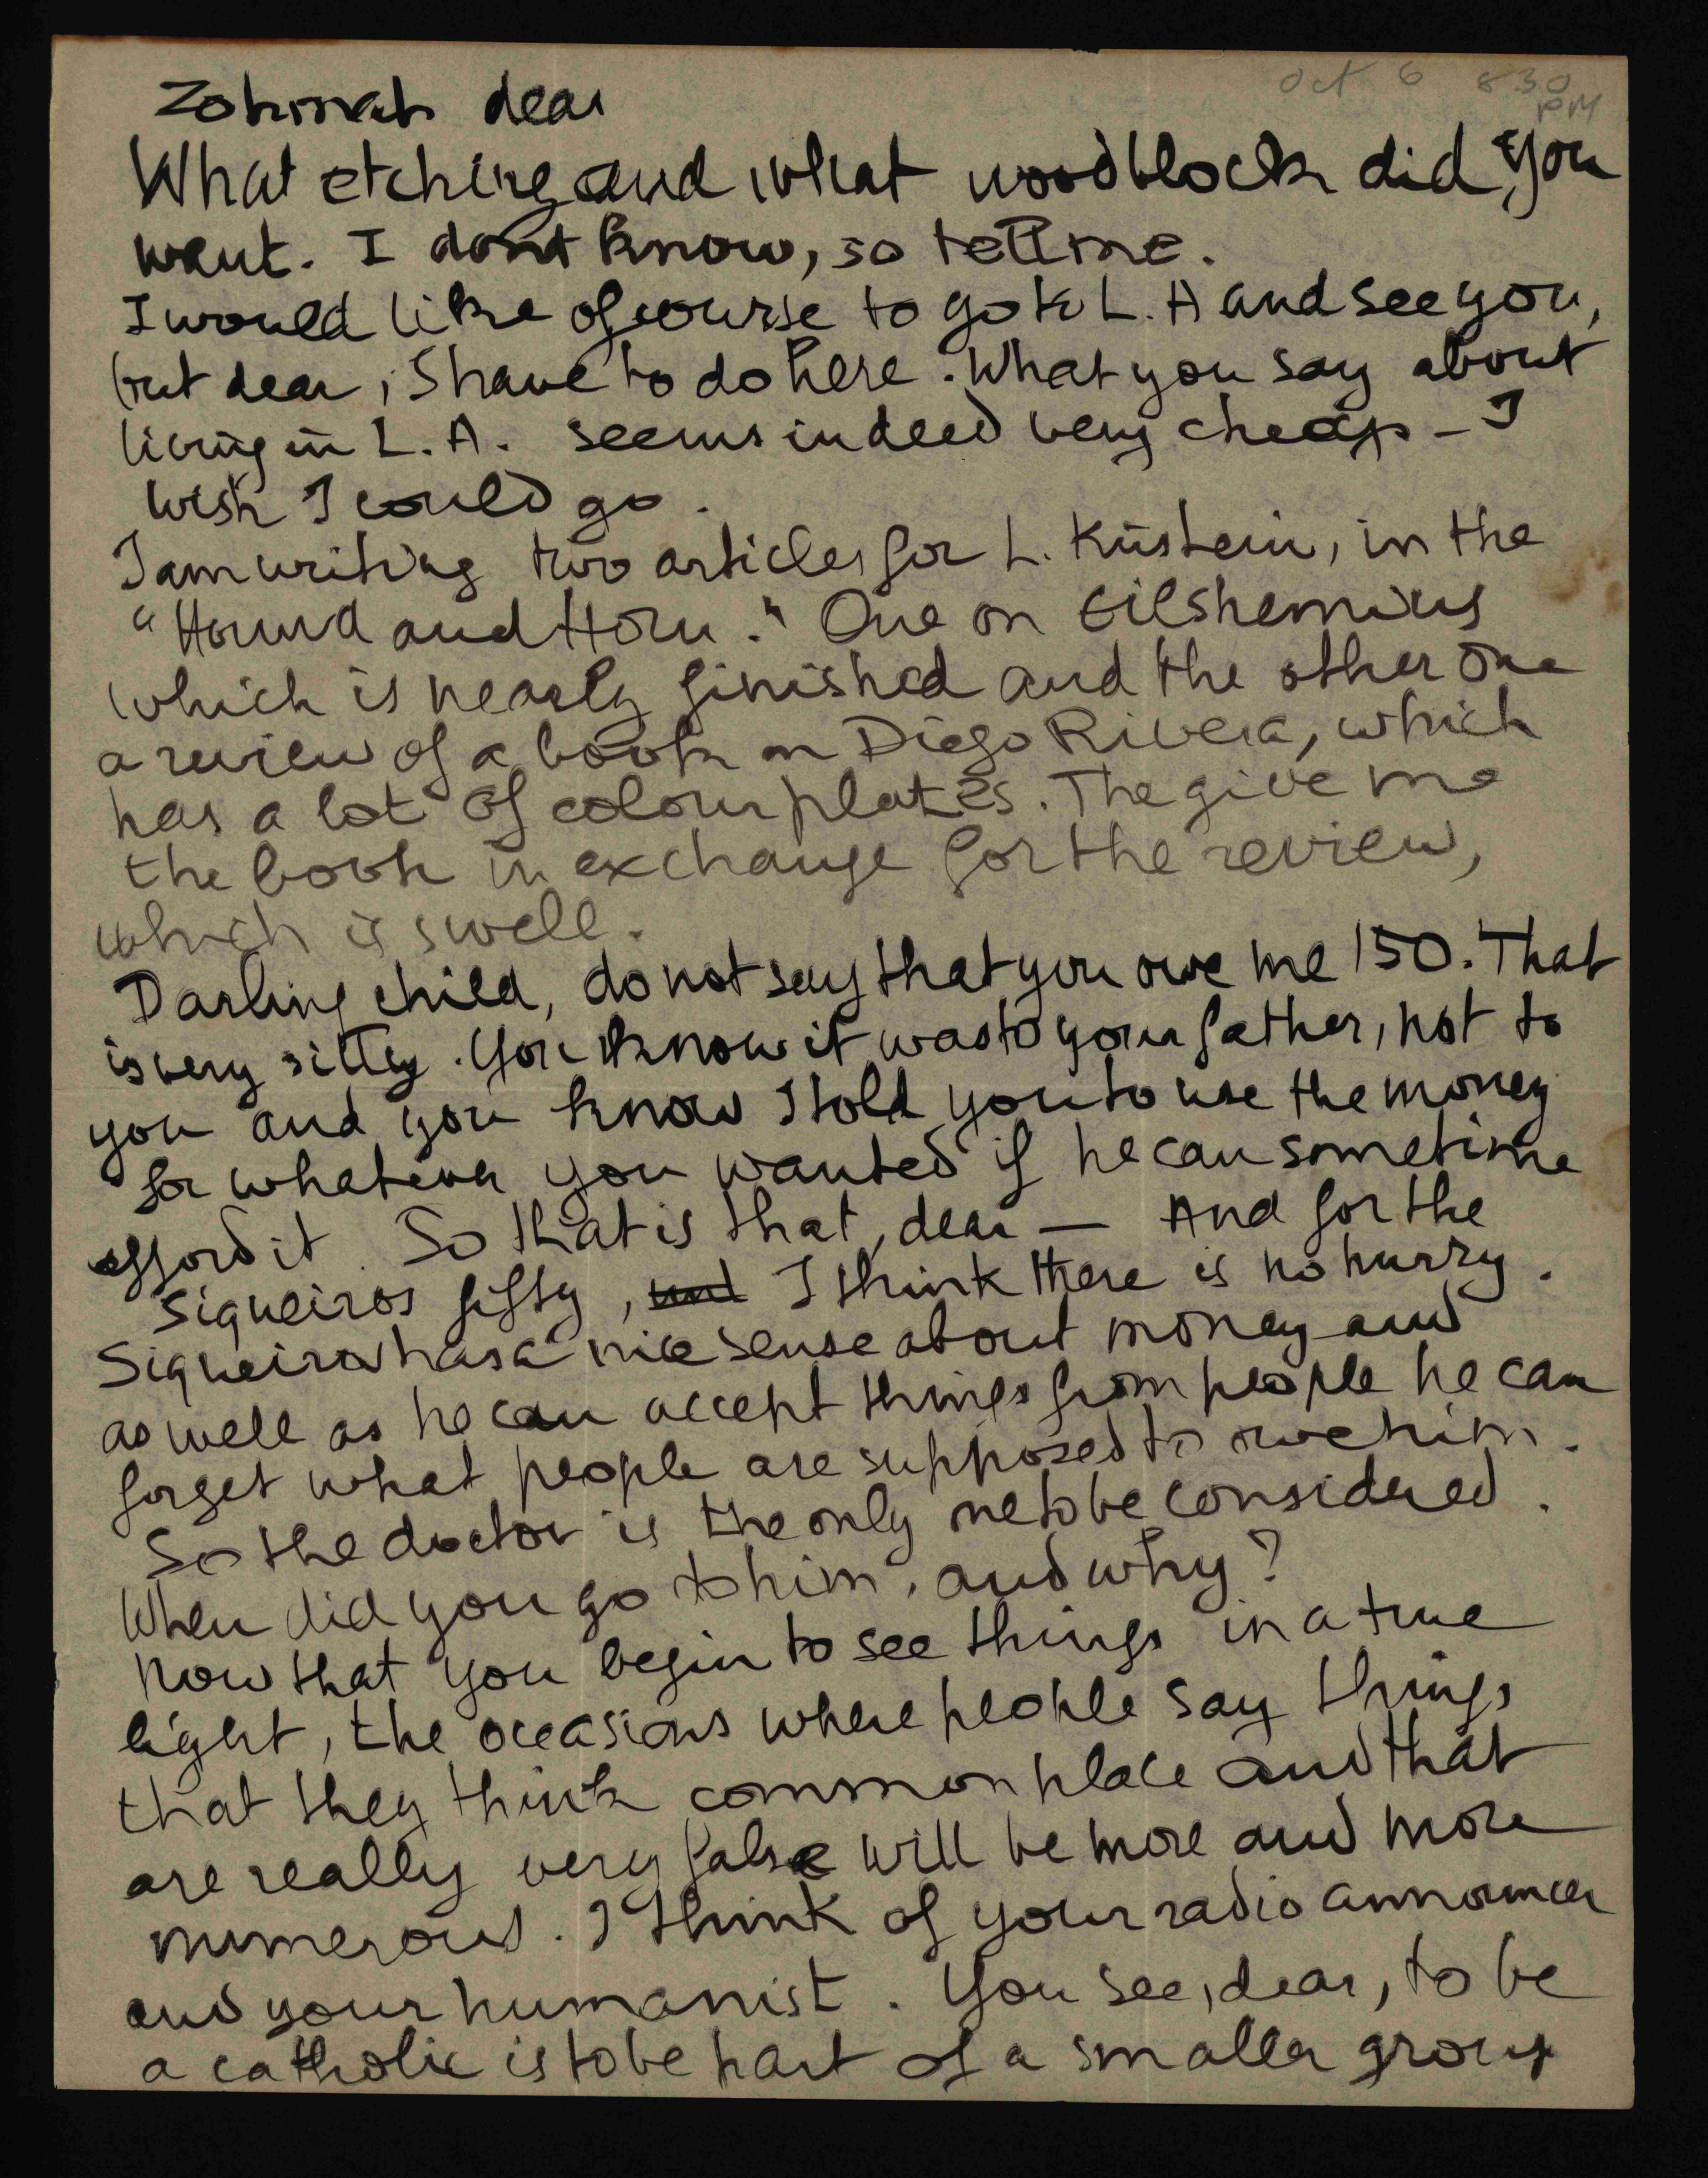 Oct 6 830
PM
Zohmah dear
What etching and what woodblock did you
want. I dont know, so tell me.
I would like of course to go to L.A and see you,
but dear, I have to do here. What you say about
living in L.A. seems indeed very cheap - I
wish I could go.
I am writing two articles for L. Kirstein, in the
"Hound and Horn." One on Eilshemius
which is nearly finished and the other one
a review of a book on Diego Rivera, which
has a lot of colour plates. The give me
the book in exchange for the review,
which is swell.
Darling child, do not say that you owe me 150. That
is very silly. You know it was to your father, not to
you and you know I told you to use the money
for whatever you wanted if he can sometime
afford it. So that is that, dear — And for the
Siqueiros fifty, and I think there is no hurry.
Siqueiros has a nice sense about money and
as well as he can accept things from people he can
forget what people are supposed to owe him.
So the doctor is the only one to be considered.
When did you go to him, and why?
Now that you begin to see things in a true
light, the occasions where people say things
that they think commonplace and that
are really very false will be more and more
numerous. I think of your radio announcer
and your humanist. You see, dear, to be
a catholic is to be part of a smaller group